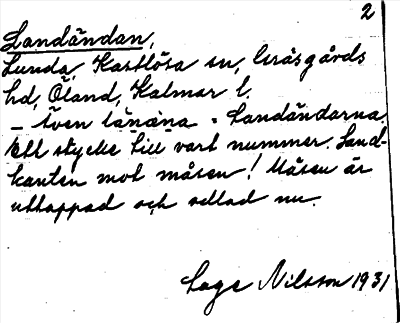 2
Landändan,
Lunda, Kastlösa sn, Gräsgårds
hd, Öland, Kalmar l.
– Även länåna = Landändarna.
Ett stycke till vart nummer. Land-
kanten mot måsen! Måsen är
uttappad och odlad nu.
Lage Nilsson 1931